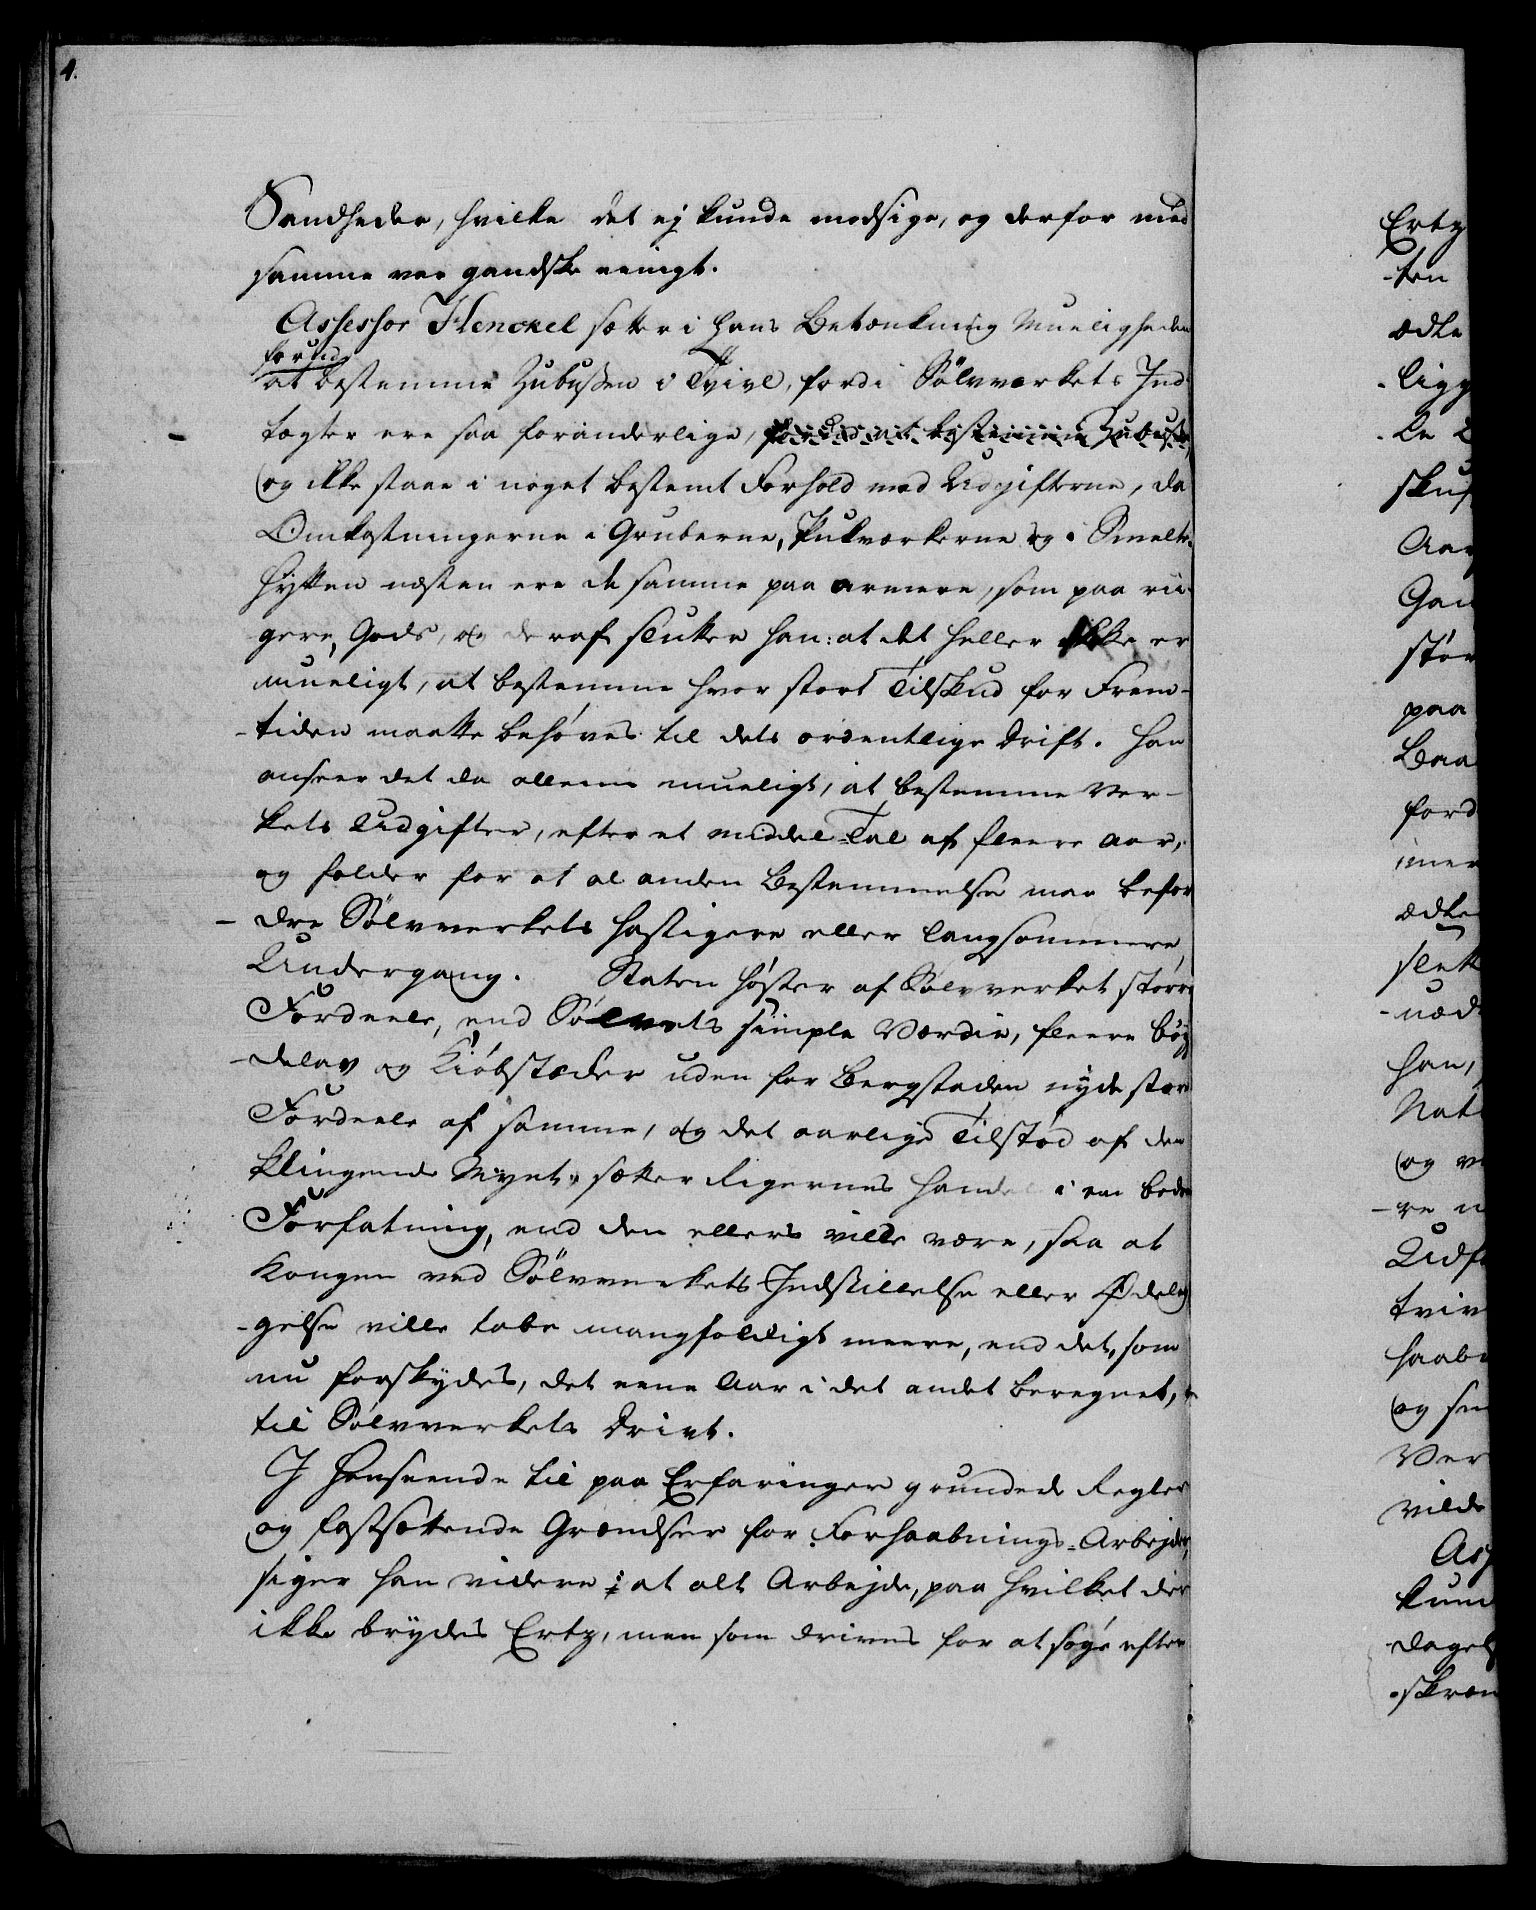 4.
Sandheder, hvilke det ej kunde modsige, og derfor med
samme var gandske eenigt.
Assessor Henckel sætter i hans Betænkning Mueligheden
forud
at bestemme Zubussen i Tvivl, fordi Sølvværkets Ind
tægter ere saa foranderlige, forud at bestemme Zubussen
og ikke staae i noget bestemt Forhold med Udgifterne, da
Omkostningerne i Gruberne, Pukværkerne og i Smelte
Hytten næsten ere de samme paa armere, som paa rii-
gere Gods, og deraf slutter han: at det heller ikke er
mueligt, at bestemme hvor stort Tilskud for Frem-
-tiden maatte behøves til dets ordentlige Drift. Han
anseer det da alleene mueligt, at bestemme Ver-
kets Udgifter, efter et middel-Tal af fleere Aar,
og holder for at al anden Bestemmelse maa befor
-dre Sølvverkets hastigere eller langsommere
Undergang. Staten høster af Sølvverket større
Fordeele, end Sølvets simple Værdie, fleere Bøg
-delav og Kiøbstæder uden for Bergstaden nyde store
Fordeele af samme, og det aarlige Tilstød af den
klingende Mynt, sætter Rigernes Handel i en bedre
Forfatning, end den ellers vilde være, saa at
Kongen ved Sølvverkets Indstillelse eller Ødelæg
-gelse ville tabe mangfoldigt meere, end det, som
nu forskydes, det eene Aar i det andet beregnet,
til Sølvverkets Drivt.
I Henseende til paa Erfaringer grundede Regler
og fastsættende Grændser for Forhaabnings-Arbejder,
siger han videre: at alt Arbejde, paa hvilket der
ikke brydes Ertz, men som drives for at søge efter
Ertz
-ten
ædle
-ligg
skuf
Aar
Gan
stør
paa
Baa
ford
imer
ædle
slett
-næd
han,
og v
-re
Udf
tviv
haab
og sm
Ver
vilde
Ass
kun
-dagel